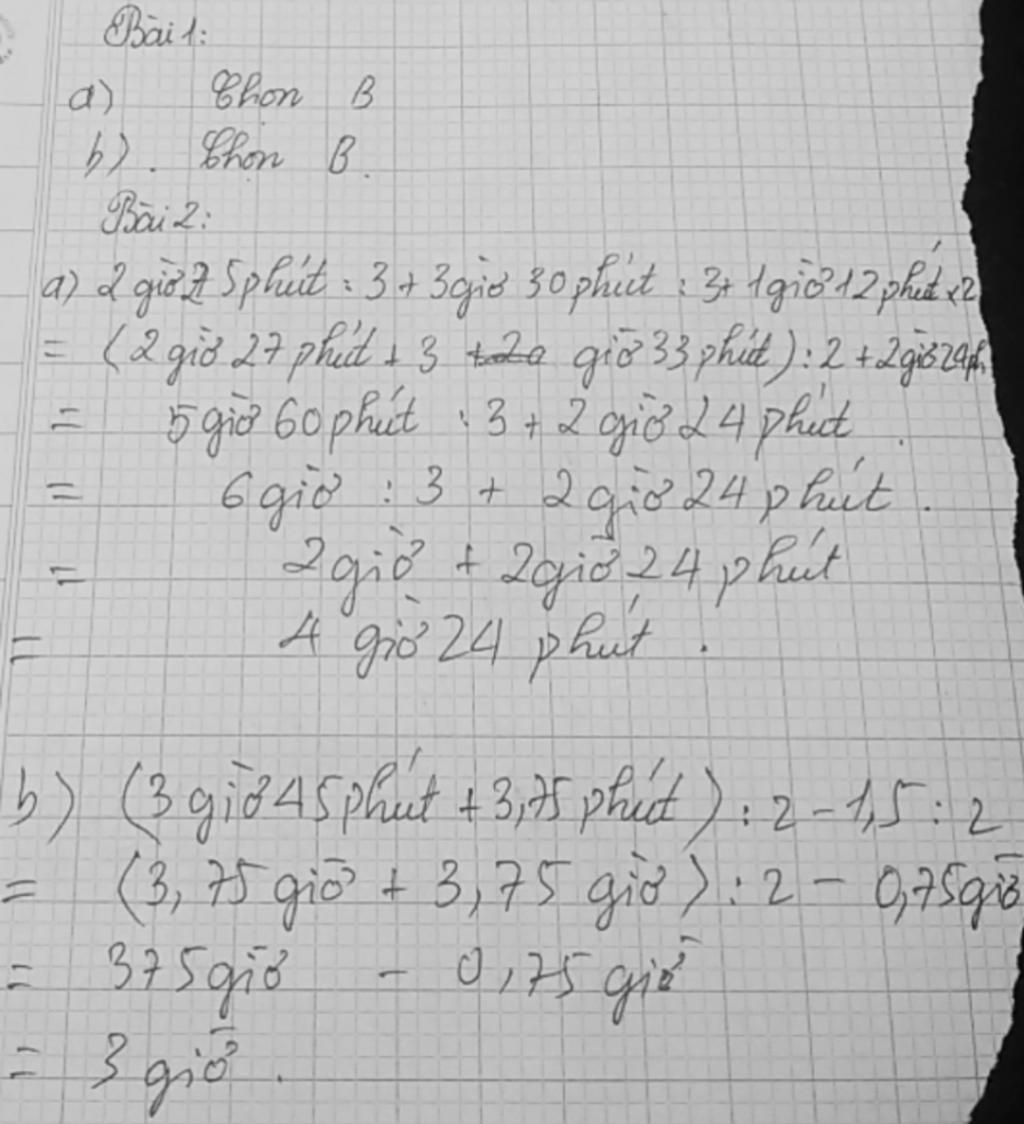 Bài 1:
a) Chọn B
b). Chọn B.
Bài 2:
a) 2 giờ 5 phút : 3 + 3 giờ 30 phút : 3 + 1 giờ 12 phút x 2
= (2 giờ 27 phút + 3 giờ 33 phút) : 2 + 2 giờ 24 ph
= 5 giờ 60 phút : 3 + 2 giờ 24 phút.
= 6 giờ : 3 + 2 giờ 24 phút.
= 2 giờ + 2 giờ 24 phút
= 4 giờ 24 phút.
b) (3 giờ 45 phút + 3,75 phút) : 2 - 1,5 : 2
= (3,75 giờ + 3,75 giờ) : 2 - 0,75 giờ
= 375 giờ - 0,75 giờ
= 3 giờ.